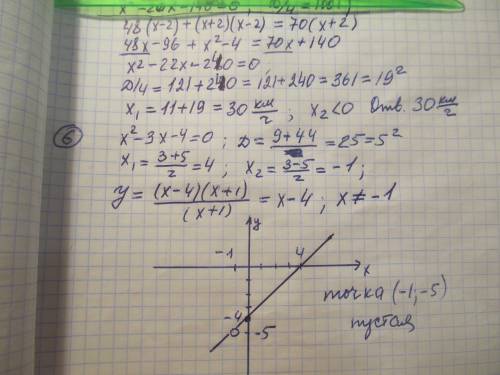 48(x-2)+(x+2)(x-2)=70(x+2)
48x-96+x²-4=70x+140
x²-22x-240=0
Д/4=121+240=121+240=361=19²
x₁=11+19=30 км/ч ; x₂<0 Отв. 30 км/ч
⑥ x²-3x-4=0 ; D=9+4·4=25=5²
x₁=(3+5)/2=4 ; x₂=(3-5)/2=-1 ;
y=((x-4)(x+1))/(x+1)=x-4 ; x≠-1
y
-1 4 x
точка (-1;-5)
пустая
-4
-5